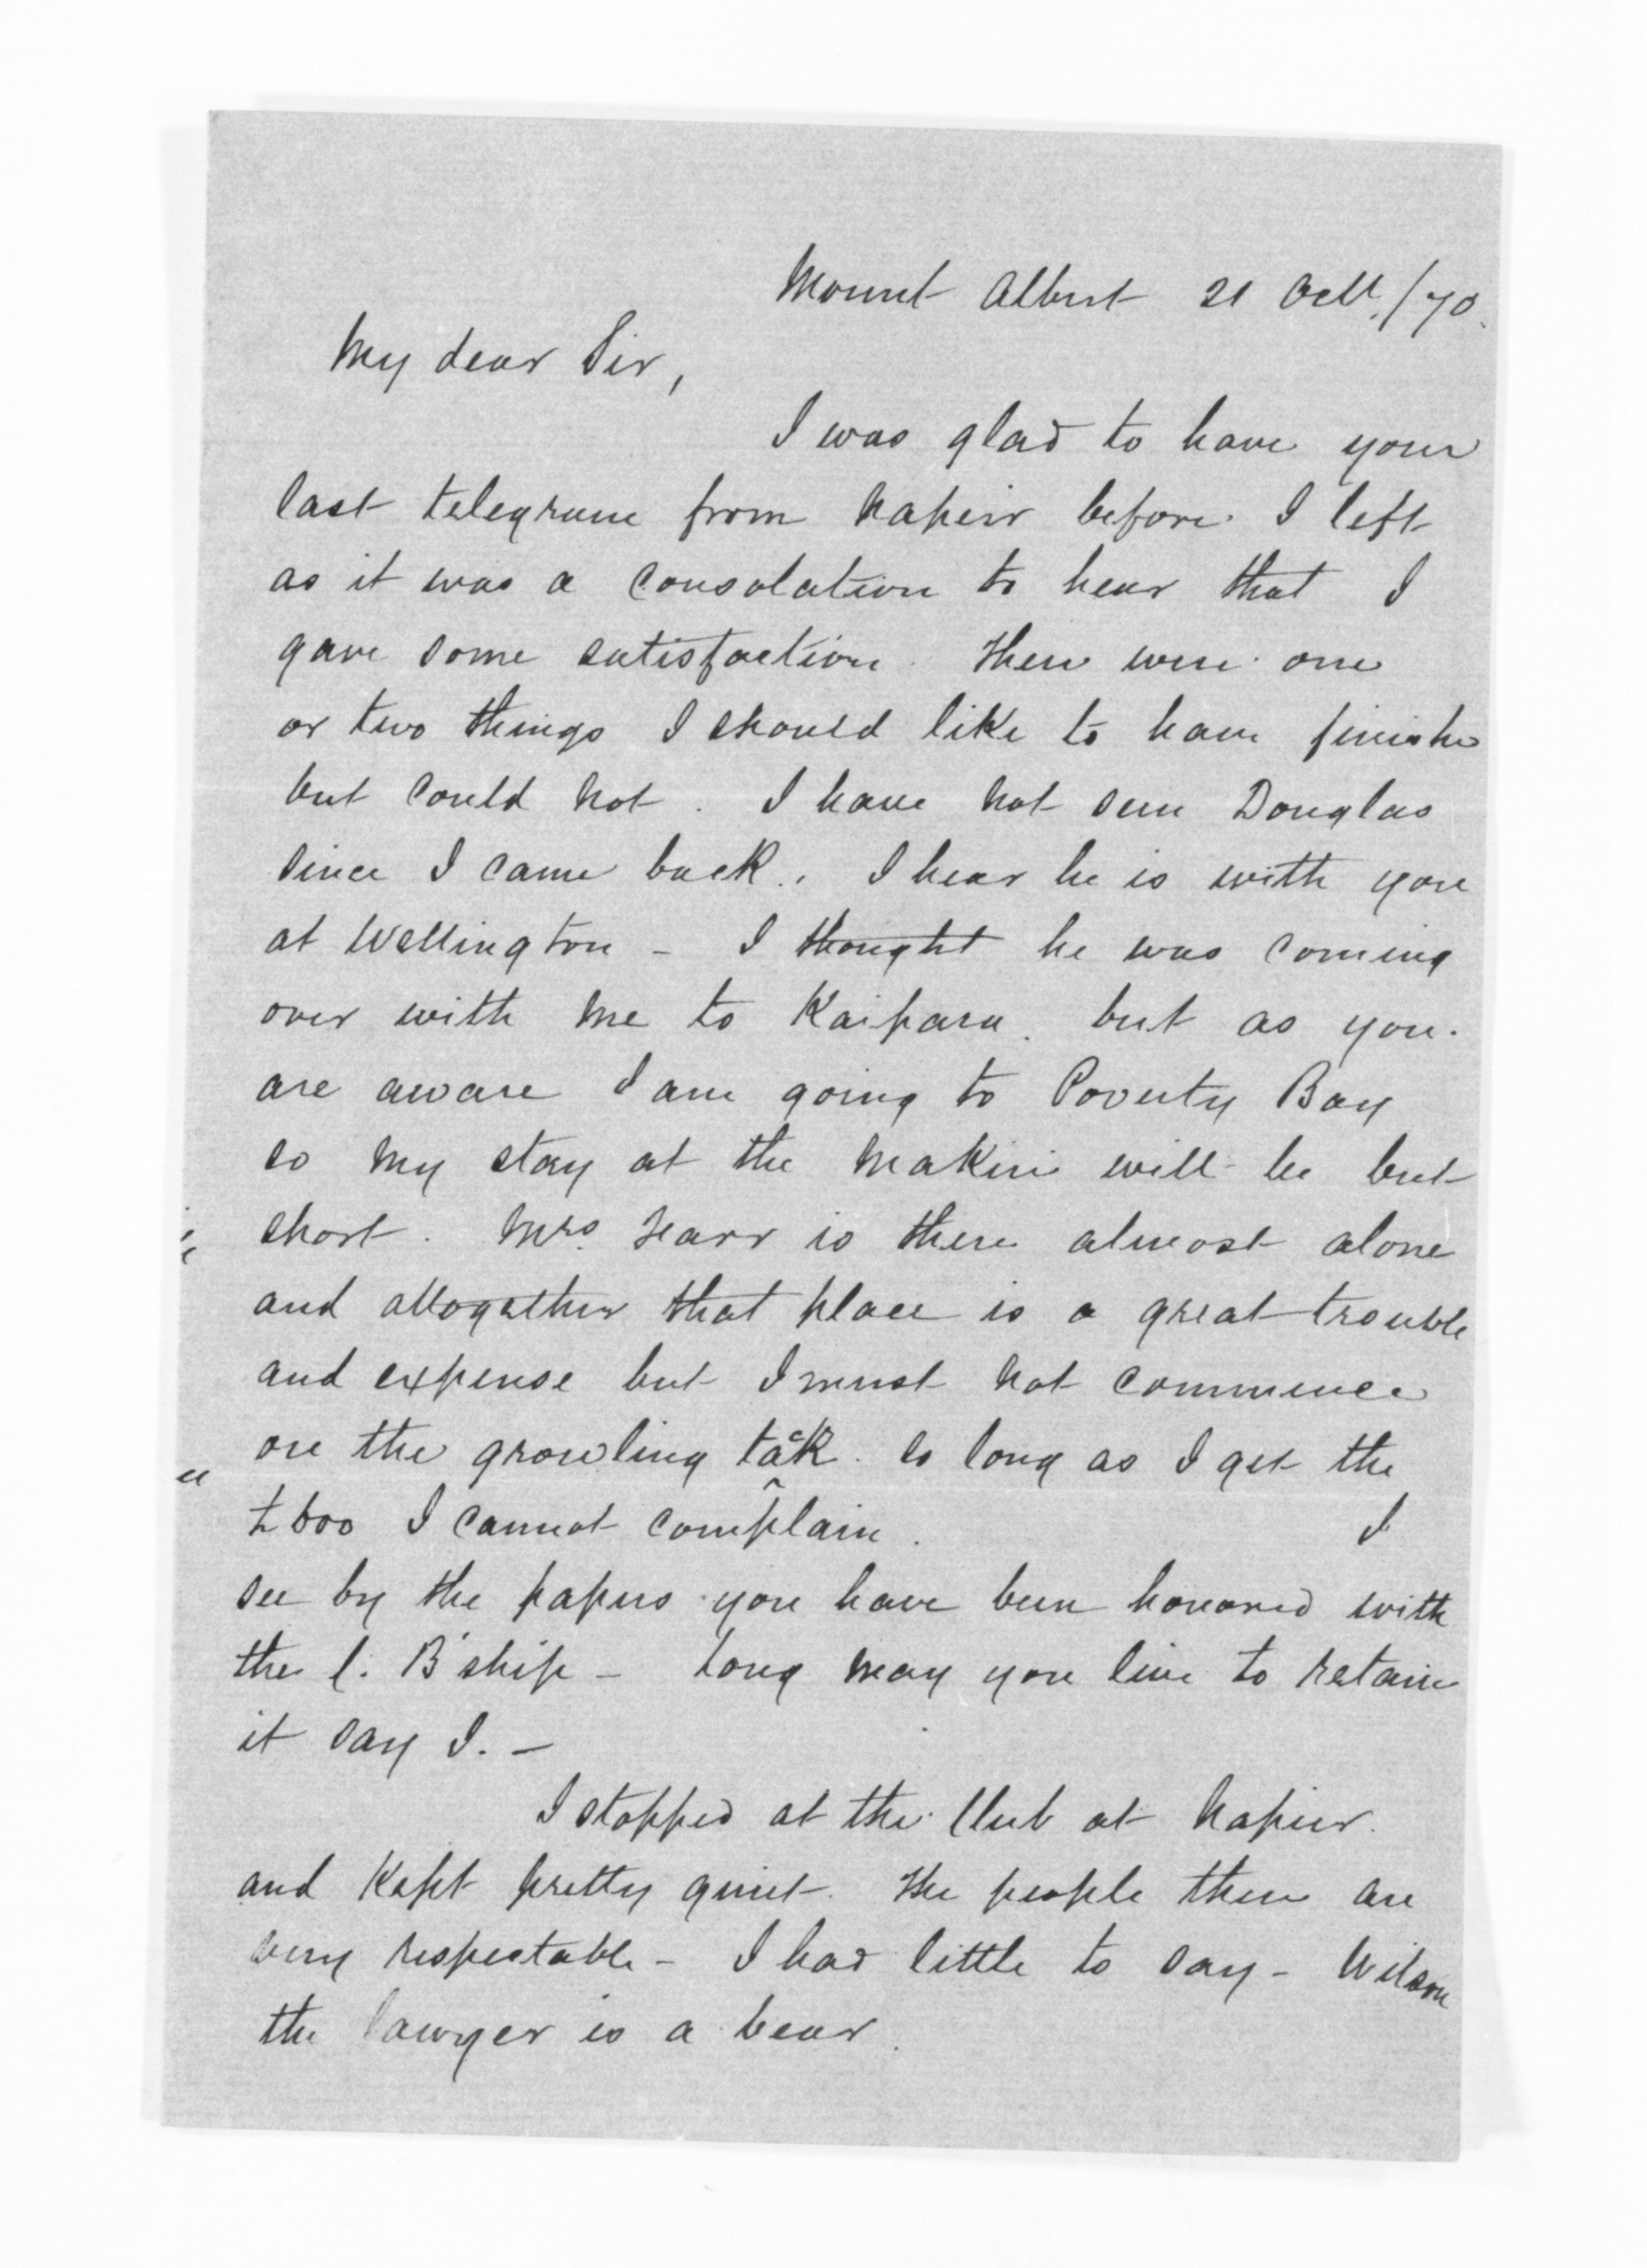 Mount Albert 21 Octr./70.
My dear Sir,
I was glad to have your
last telegram from Napier before I left
as it was a consolation to hear that I
gave some satisfaction. There were one
or two things I should like to have finished
but could not. I have not seen Douglas
since I came back. I hear he is with you
at Wellington - I thought he was coming
over with me to Kaipara. but as you
are aware I am going to Poverty Bay
so my stay at the Makiri will be but
short. Mrs. Harr is there almost alone
and altogether that place is a great trouble
and expense but I must not commence
on the growling tack. So long as I get the
£600 I cannot complain. I
see by the papers you have been honored with
the C. B'ship - Long may you live to retain
it say I. -
I stopped at the Club at Napier.
and Kept pretty quiet. The people there are
very respectable - I had little to say - Wilson
the lawyer is a bear.